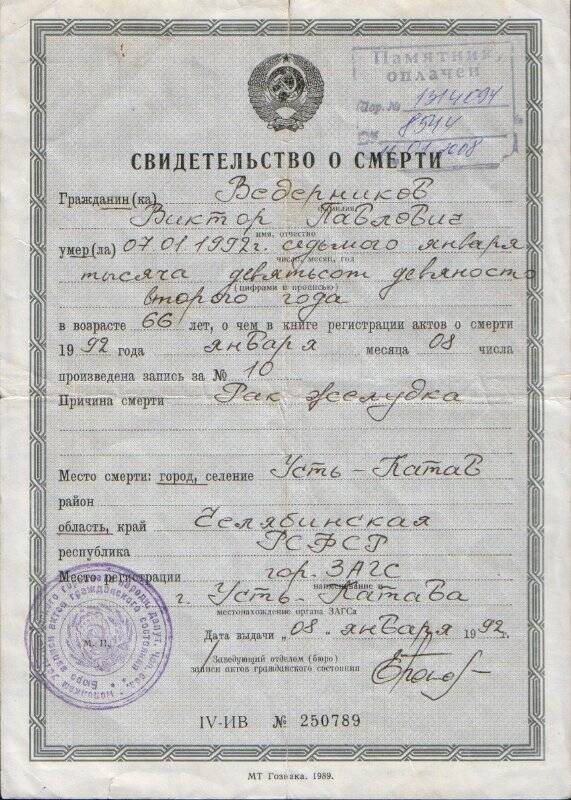 Памятник
оплачен
Пор. № 1314094
8544
2008
СВИДЕТЕЛЬСТВО О СМЕРТИ
Гражданин(ка) Ведерников
фамилия
Виктор Павлович
имя, отчество
умер(ла) 07.01.1992г. седьмого января
число, месяц, год
тысяча девятьсот девяносто
(цифрами и прописью)
второго года
в возрасте 66 лет, о чем в книге регистрации актов о смерти
1992 года января месяца 08 числа
произведена запись за № 10
Причина смерти Рак желудка
Место смерти: город, селение Усть-Катав
район
область, край Челябинская
республика РСФСР
Место регистрации гор. ЗАГС
наименование и
г. Усть-Катава
местонахождение органа ЗАГСа
Дата выдачи „08„ января 1992г.
М. П.
Заведующий отделом (бюро)
записи актов гражданского состояния
IV-ИВ № 250789
МТ Гознака. 1989.